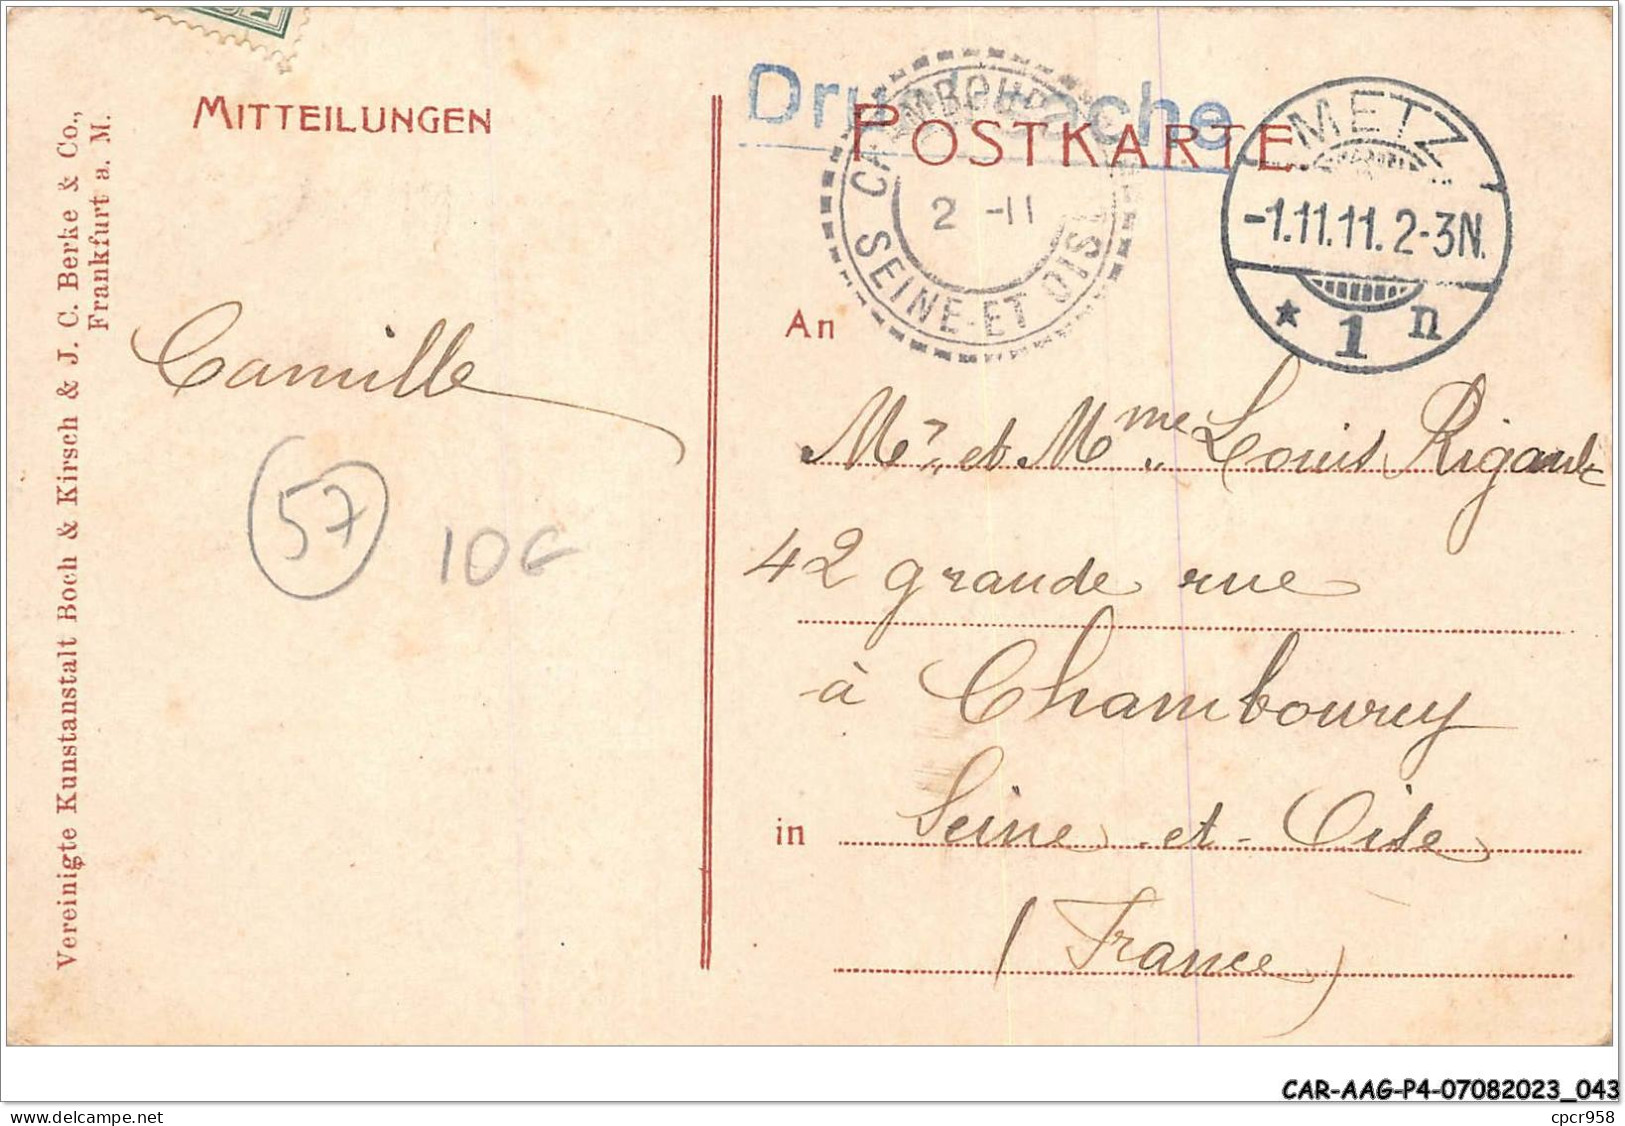 MITTEILUNGEN
Drucksache
POSTKARTE
CHAMBOURCY
2 -11
SEINE-ET-OISE
METZ
-1.11.11. 2-3N.
* 1 n
Vereinigte Kunstanstalt Boch & Kirsch & J. C. Berke & Co.,
Frankfurt a. M.
Camille
57
10€
An
Mr. et Mme. Louis Rigault
42 grande rue
à Chambourcy
in Seine-et-Oise
(France)
CAR-AAG-P4-07082023_043
www.delcampe.net
cpcr958